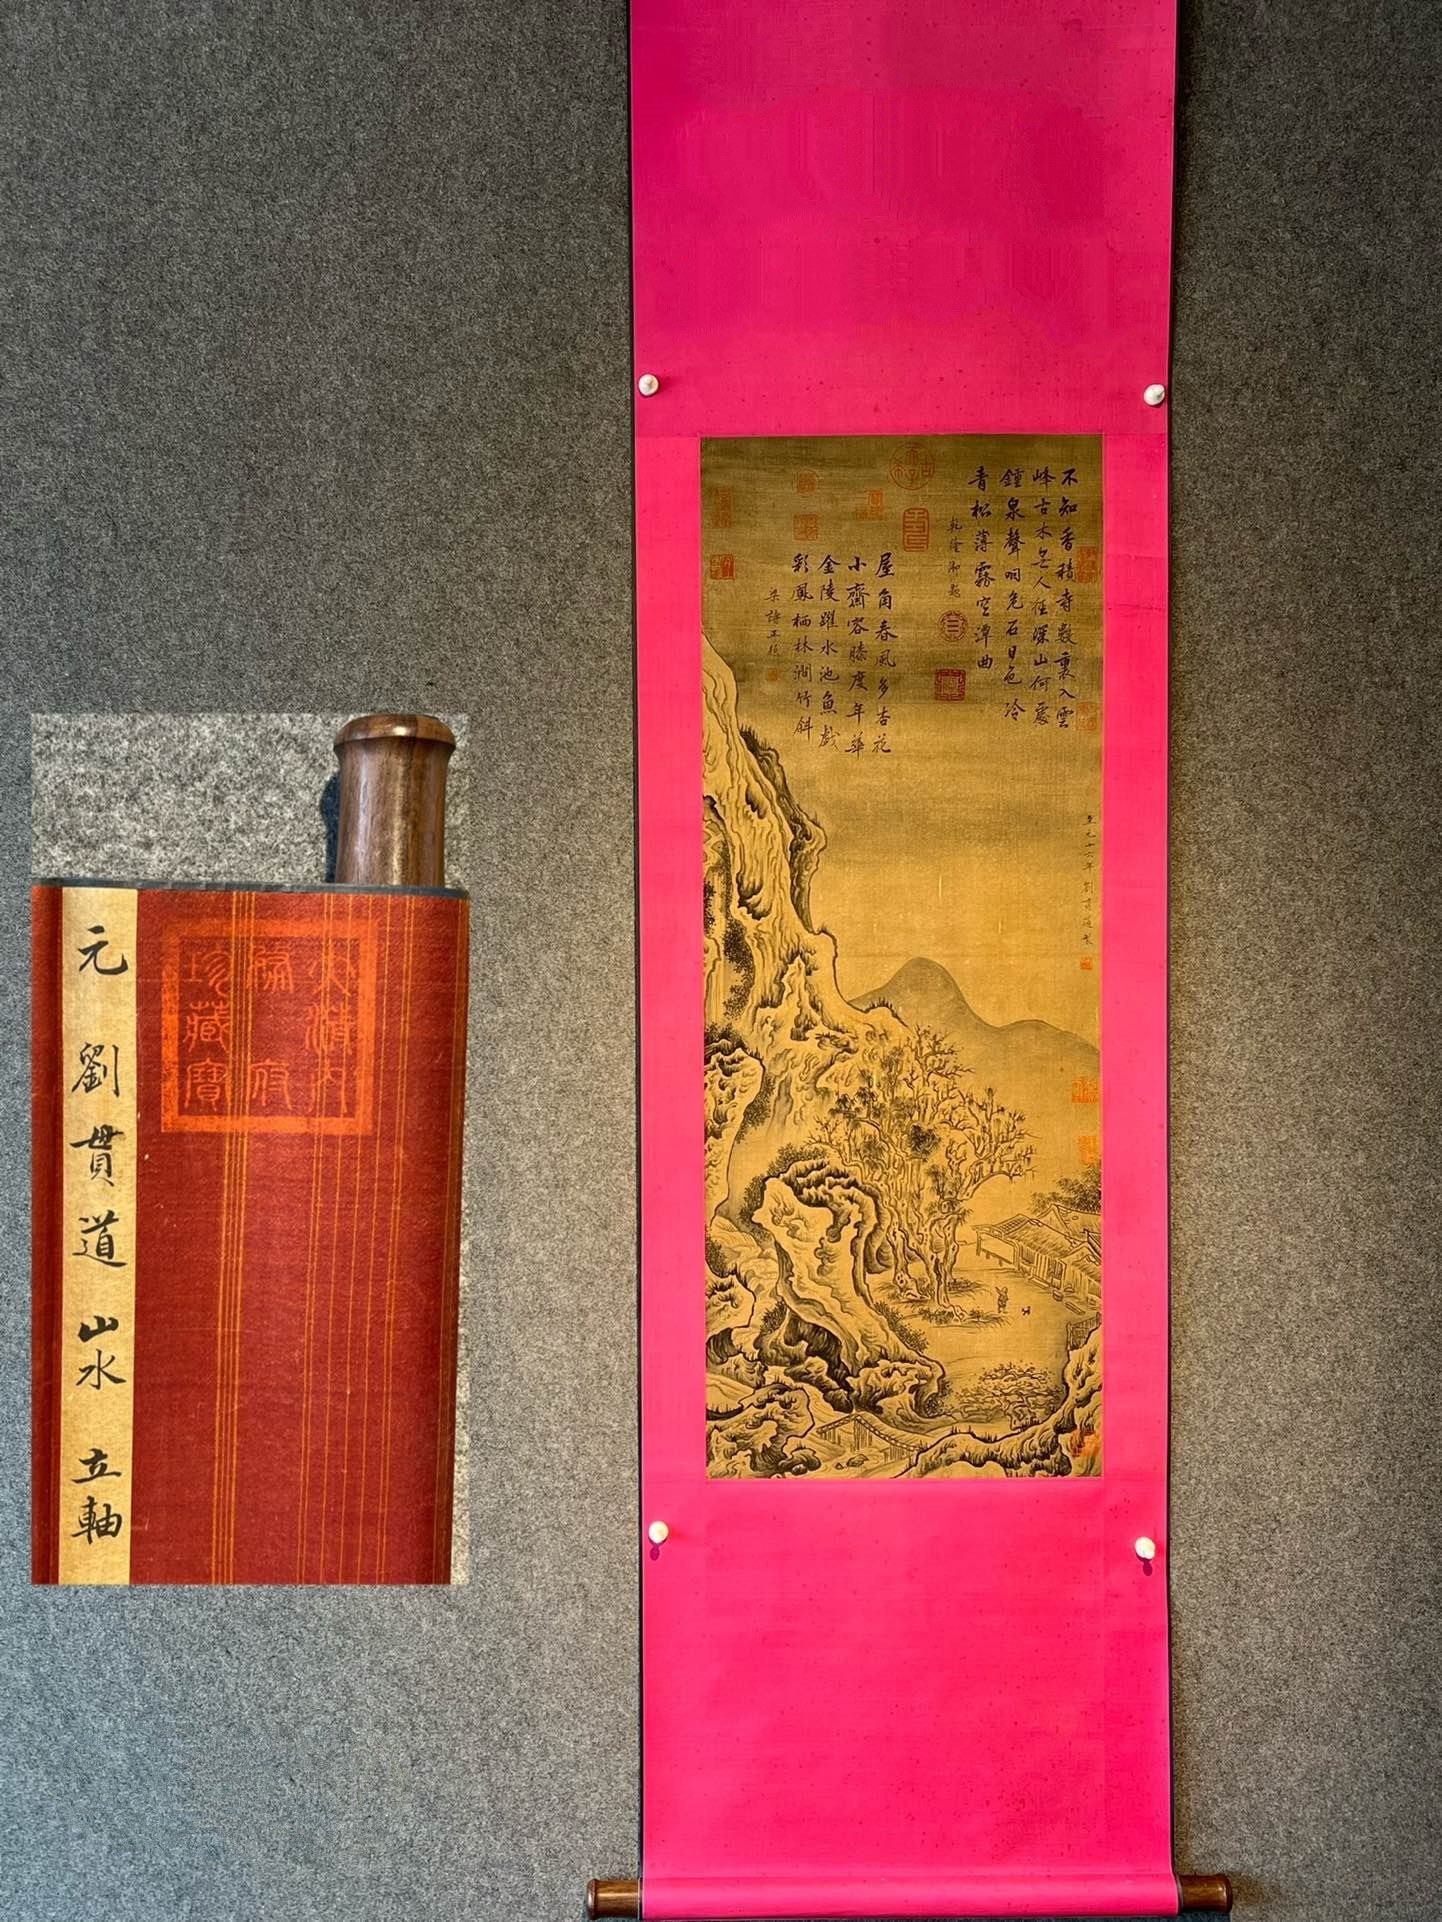 元 劉貫道 山水 立軸
大清內
府
珍藏寶
不知香積寺數裏入雲
峰古木无人徑深山何處
鍾泉聲咽危石日色冷
青松薄霧空潭曲
乾隆御題
屋角春風多杏花
小齋容膝度年華
金陵躍水池魚戲
彩鳳栖林澗竹斜
梁詩正題
至元十六年劉貫道製